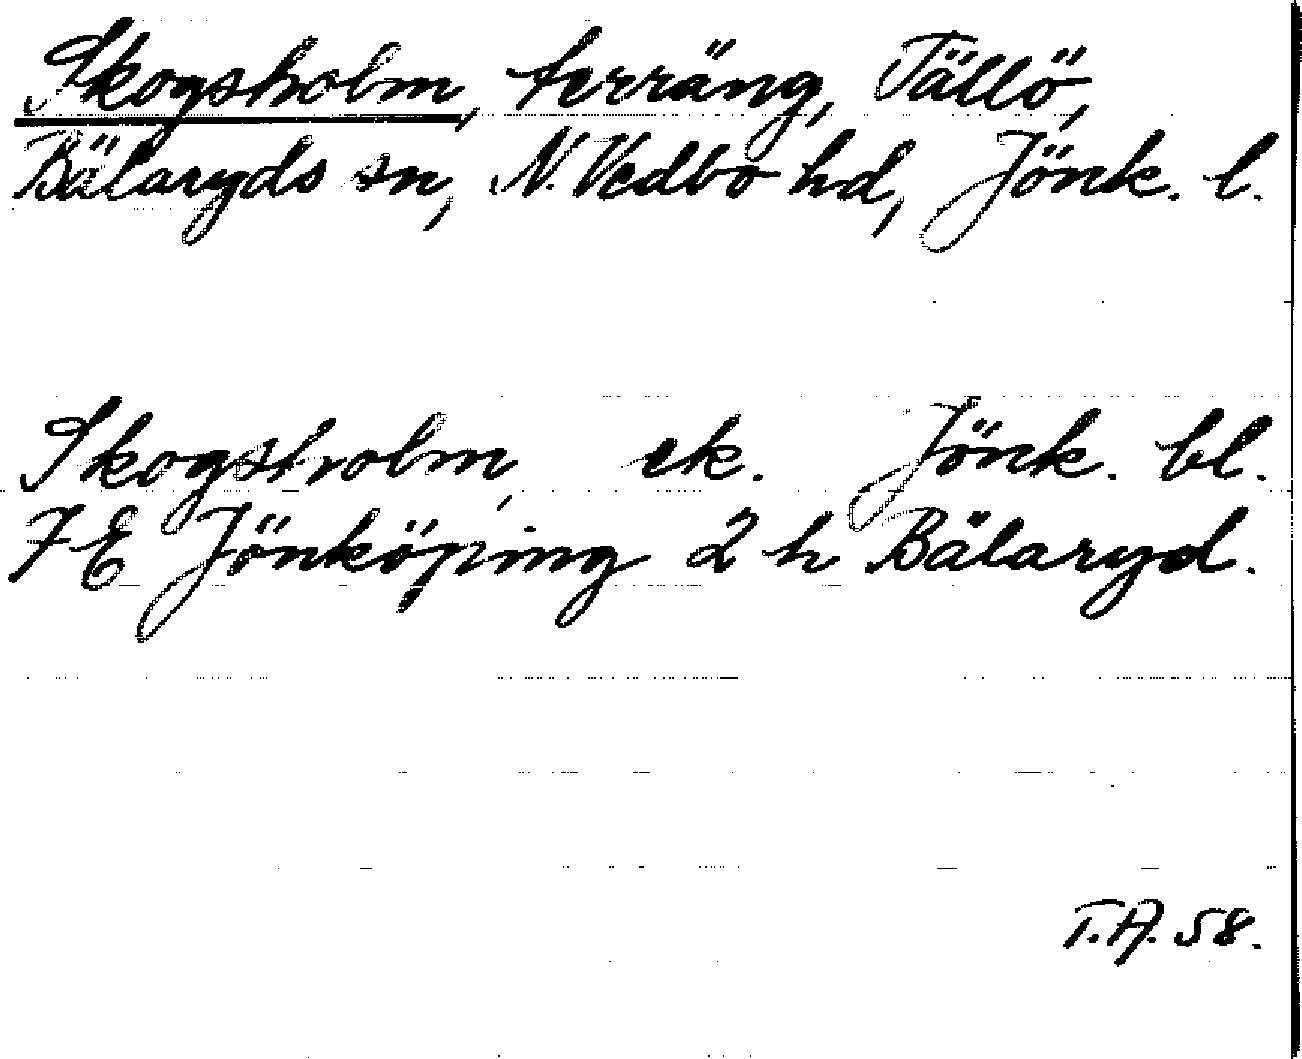 Skogsholm, terräng, Tällö,
Bälaryds sn, N. Vedbo hd, Jönk. l.
Skogsholm, ek. Jönk. bl.
7 E Jönköping 2 h Bälaryd.
T.A. 58.